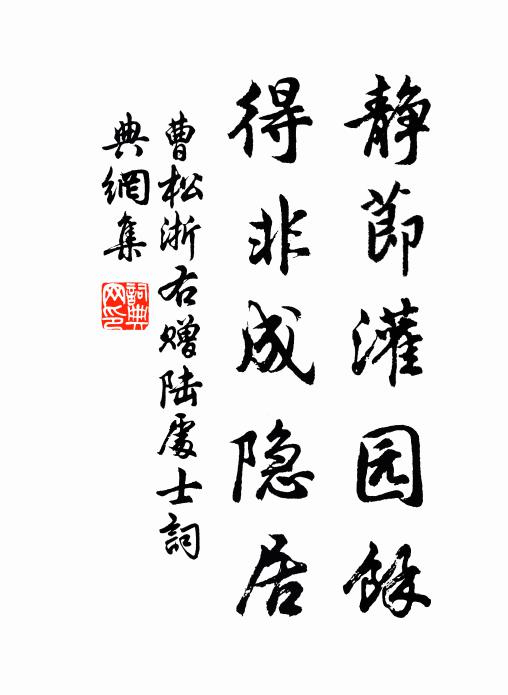 静節灌园餘
得非成隐居
曹松浙右赠陆處士詞
典網集
詞典网印